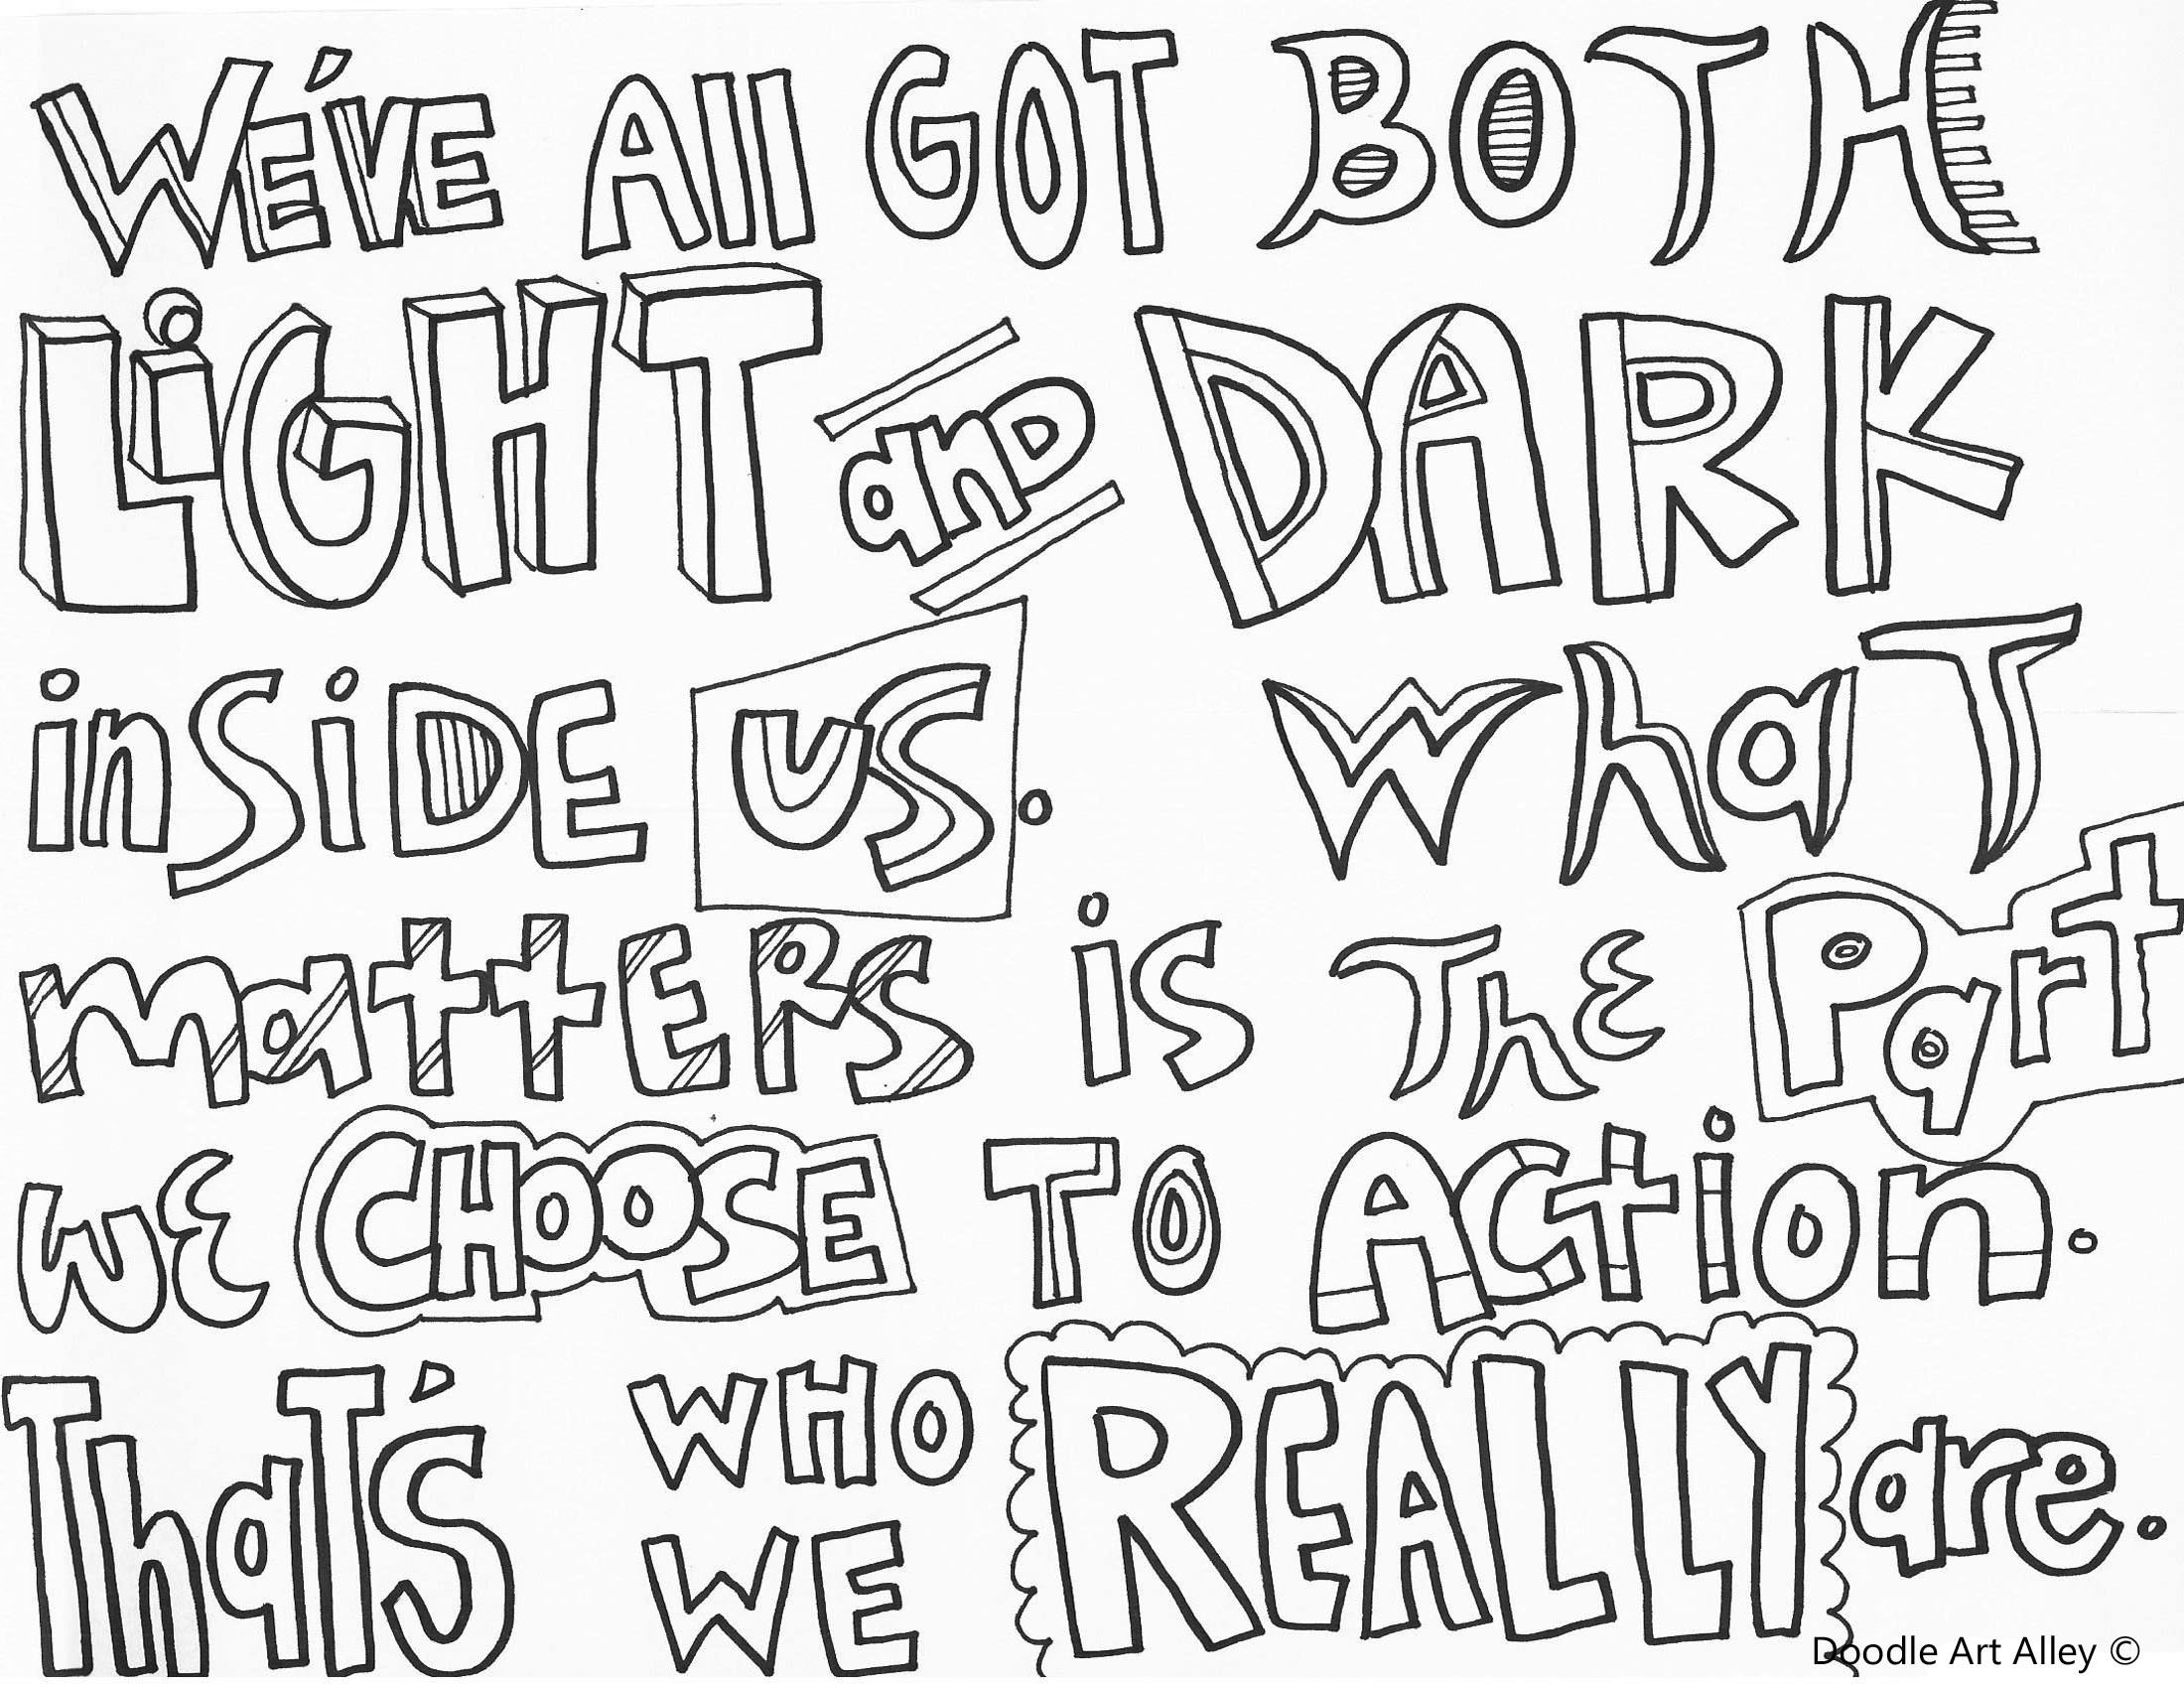 WE'VE All GOT BOTH
LiGHT and DARK
inSiDE US. WhaT
mattERS iS ThE Part
wE CHOOSE TO ACtion.
ThaT'S WHO
WE REALLY are.
Doodle Art Alley ©